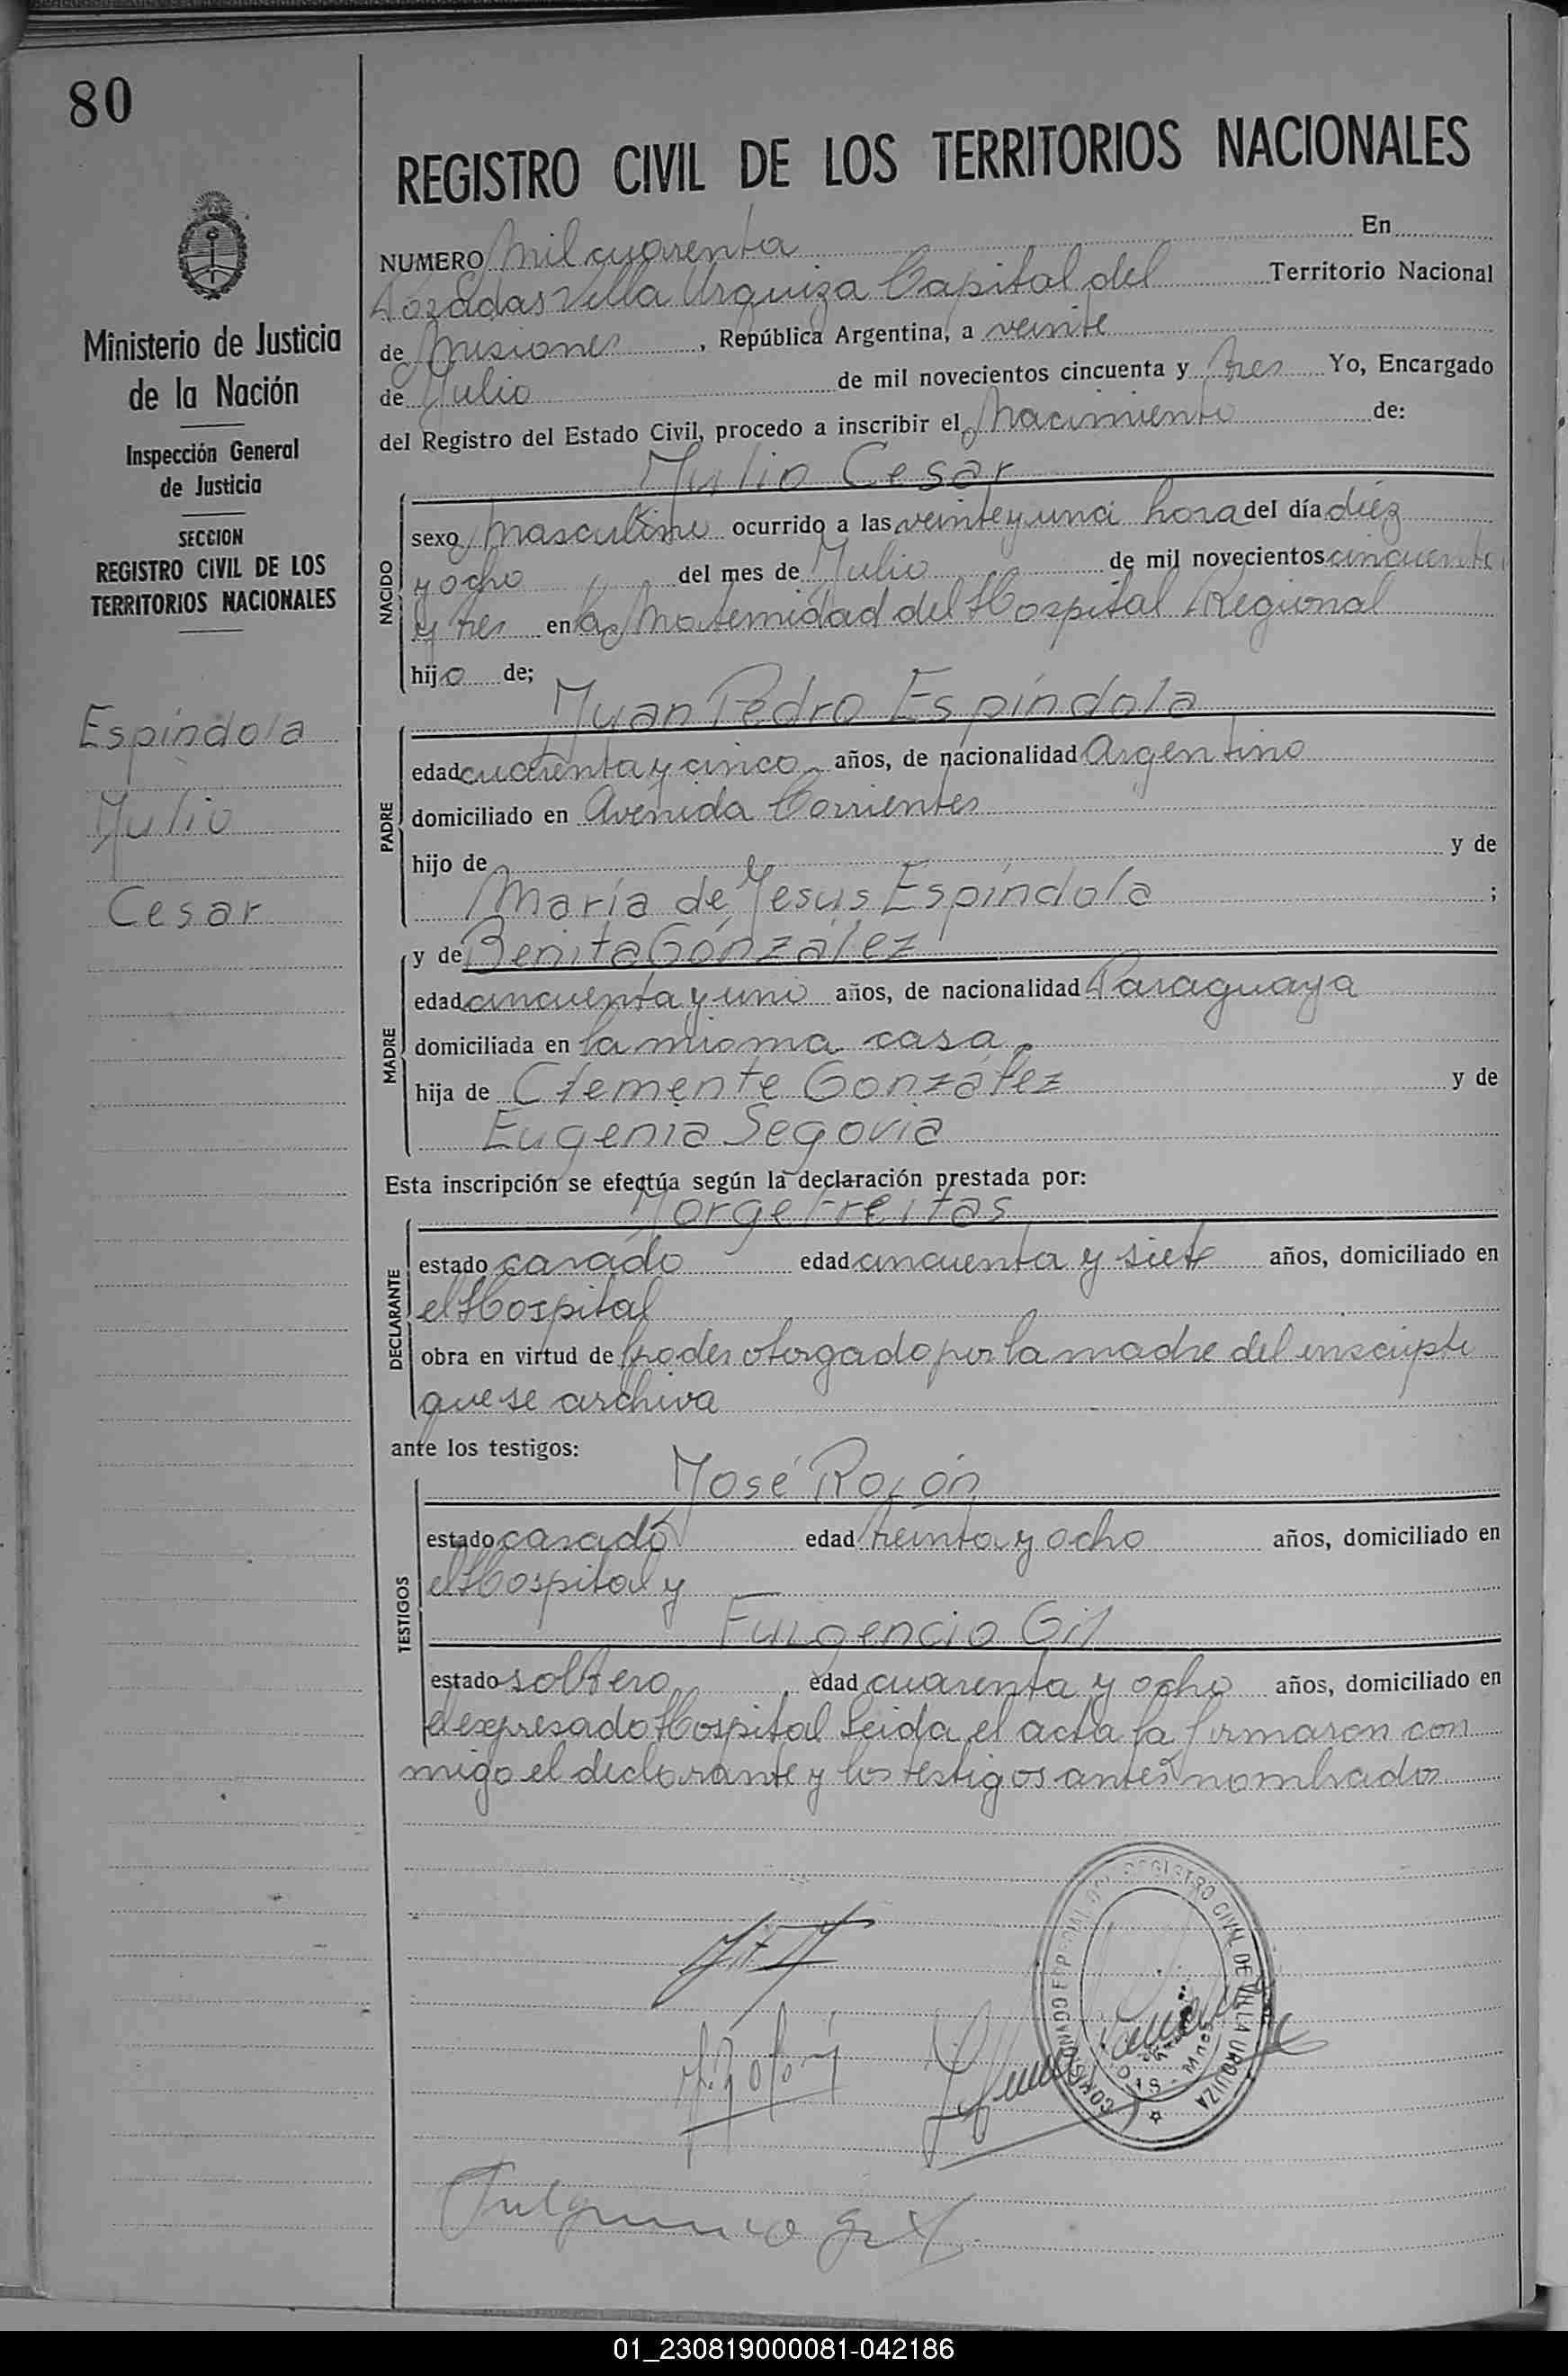 80
REGISTRO CIVIL DE LOS TERRITORIOS NACIONALES
Ministerio de Justicia
de la Nación
Inspección General
de Justicia
SECCION
REGISTRO CIVIL DE LOS
TERRITORIOS NACIONALES
Espíndola
Julio
Cesar
NUMERO Mil cuarenta En
Posadas Villa Urquiza Capital del Territorio Nacional
de Misiones, República Argentina, a veinte
de Julio de mil novecientos cincuenta y tres Yo, Encargado
del Registro del Estado Civil, procedo a inscribir el Nacimiento de:
Julio Cesar
NACIDO
sexo Masculino ocurrido a las veinte y una hora del día diez
y ocho del mes de Julio de mil novecientos cincuenta
y tres en la Maternidad del Hospital Regional
hijo de;
Juan Pedro Espíndola
PADRE
edad cuarenta y cinco años, de nacionalidad Argentino
domiciliado en Avenida Corrientes
hijo de y de
María de Jesús Espíndola ;
y de Benita González
MADRE
edad cincuenta y uno años, de nacionalidad Paraguaya
domiciliada en la misma casa
hija de Clemente González y de
Eugenia Segovia
Esta inscripción se efectúa según la declaración prestada por:
Jorge Freitas
DECLARANTE
estado casado edad cincuenta y siete años, domiciliado en
el Hospital
obra en virtud de poder otorgado por la madre del inscripto
que se archiva
ante los testigos:
José Rolón
TESTIGOS
estado casado edad treinta y ocho años, domiciliado en
el Hospital y
Fulgencio Gil
estado soltero edad cuarenta y ocho años, domiciliado en
el expresado Hospital Leida el acta la firmaron con
migo el declarante y los testigos antes nombrados
REGISTRO CIVIL DE VILLA URQUIZA
J. Rolón
Fulgencio Gil
01_230819000081-042186